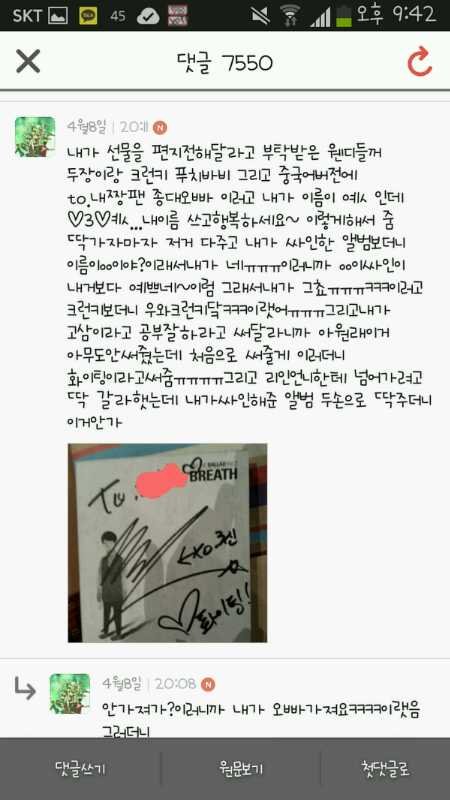 SKT 45 오후 9:42
댓글 7550
4월8일 | 20:11 N
내가 선물을 편지전해달라고 부탁받은 웬디들꺼
두장이랑 크런키 푸치바비 그리고 중국어버전에
to.내짱팬 종대오빠 이러고 내가 이름이 예시 인데
♡3♡예시...내이름 쓰고행복하세요~ 이렇게해서 줌
딱가자마자 저거 다주고 내가 싸인한 앨범보더니
이름이ㅇㅇ이야?이래서내가 네ㅠㅠㅠ이러니까 ㅇㅇ이싸인이
내거보다 예쁘네~이럼 그래서내가 그쵸ㅠㅠㅠㅋㅋㅋ이러고
크런키보더니 우와크런키닼ㅋㅋㅋ이랫어ㅠㅠㅠ그리고내가
고삼이라고 공부잘하라고 써달라니까 아원래이거
아무도안써줬는데 처음으로 써줄게 이러더니
화이팅이라고써줌ㅠㅠㅠㅠ그리고 리인언니한테 넘어가려고
딱 갈라햇는데 내가싸인해준 앨범 두손으로 딱주더니
이거안가
To.
BALLAD
BREATH
←XO 첸
♡화이팅!
4월8일 | 20:08 N
안가져가?이러니까 내가 오빠가져요ㅋㅋㅋㅋ이랫음
그러더니
댓글쓰기 원문보기 첫댓글로